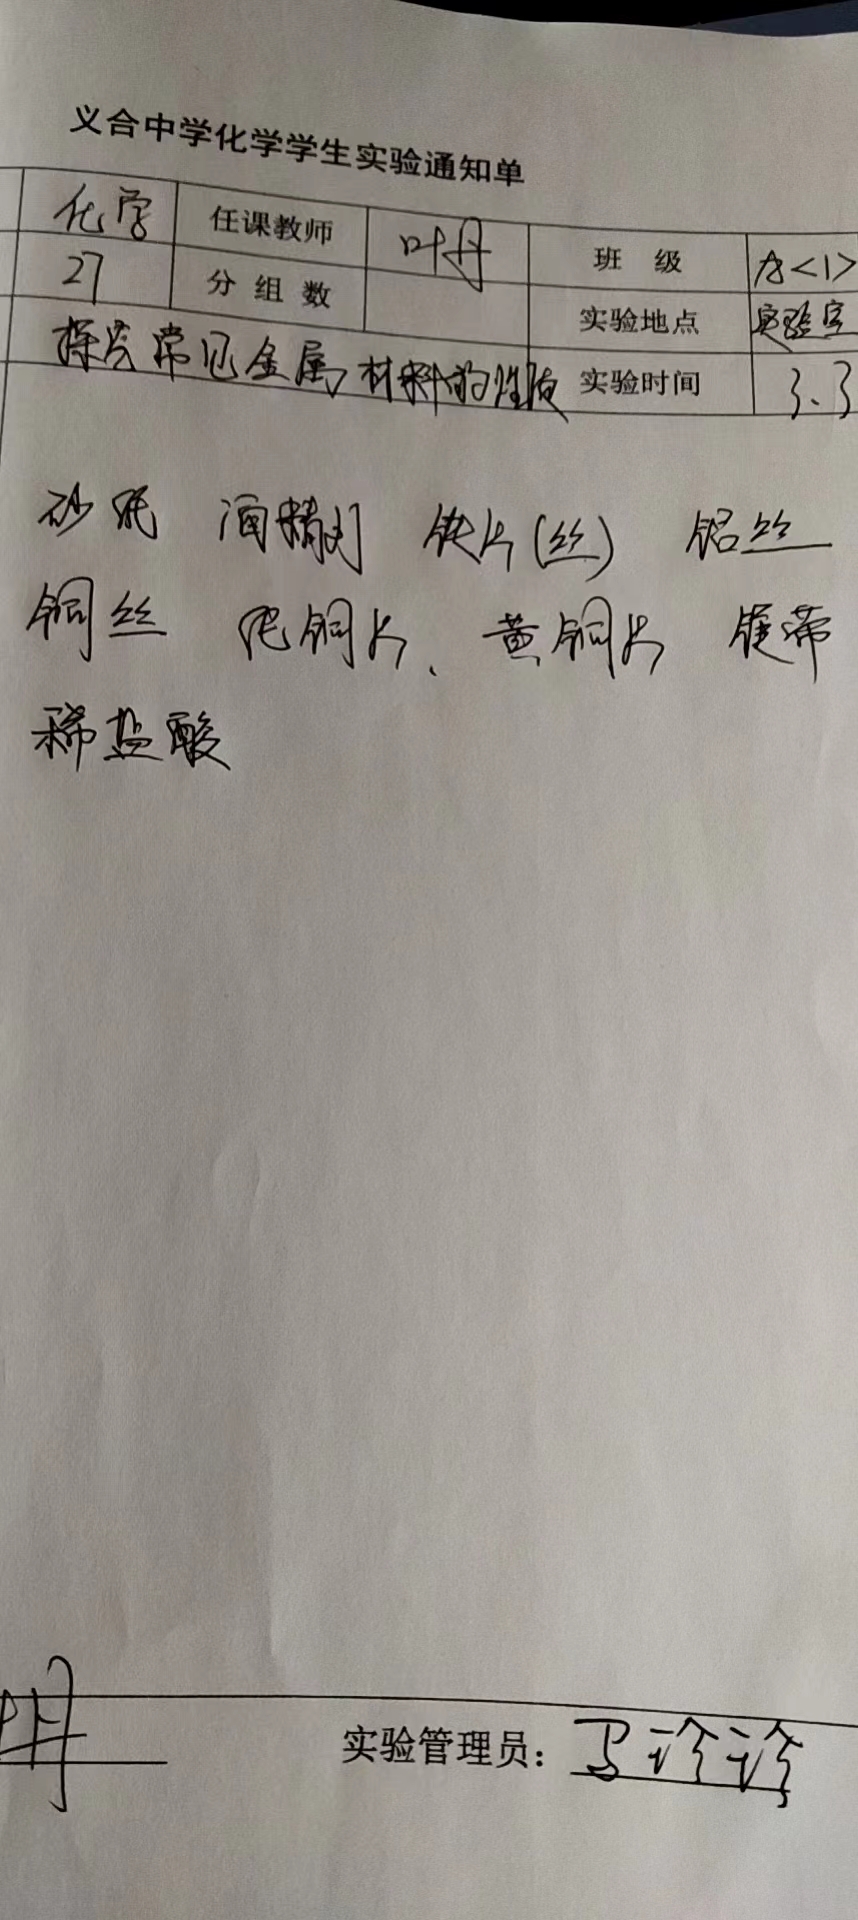 义合中学化学学生实验通知单
化学 任课教师 叶丹 班 级 九<1>
27 分 组 数 实验地点 实验室
探究常见金属材料的性质 实验时间 3.3
砂纸 酒精灯 铁片(丝) 铝丝
铜丝 纯铜片、黄铜片 镁带
稀盐酸
叶丹 实验管理员：马诊诊